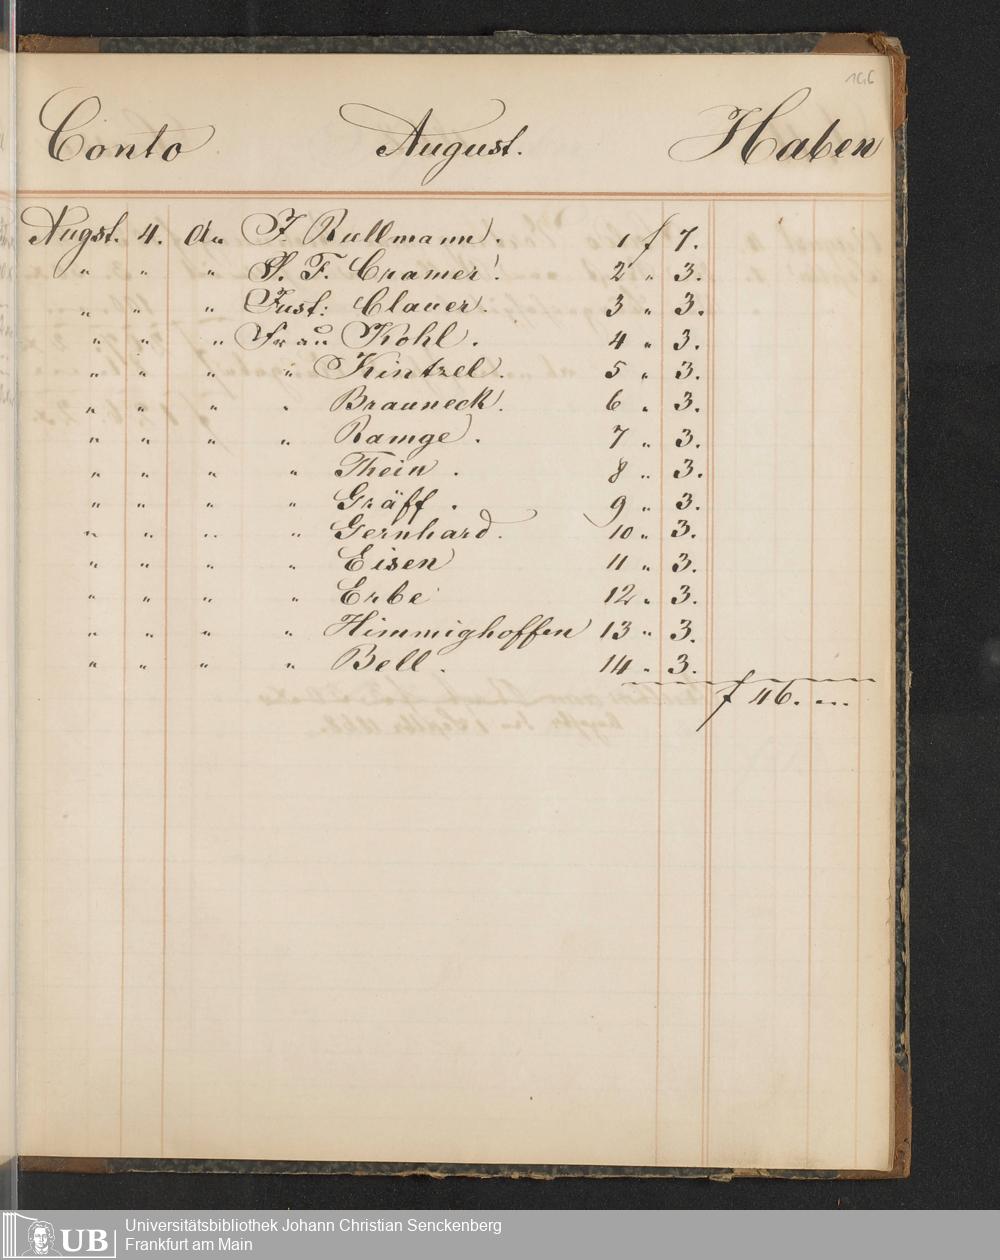 166
Conto August. Haben
Augst. 4. An F. Rullmann. 1 f 7.
" " " P. F. Cramer. 2 " 3.
" " " Just: Clauer. 3 " 3.
" " " Frau Kohl. 4 " 3.
" " " " Kintzel. 5 " 3.
" " " " Brauneck. 6 " 3.
" " " " Ramge. 7 " 3.
" " " " Thein. 8 " 3.
" " " " Gräff. 9 " 3.
" " " " Gernhard. 10 " 3.
" " " " Eisen 11 " 3.
" " " " Erbe 12 " 3.
" " " " Himmighoffen 13 " 3.
" " " " Bell. 14 " 3.
f 46. "
UB Universitätsbibliothek Johann Christian Senckenberg
Frankfurt am Main